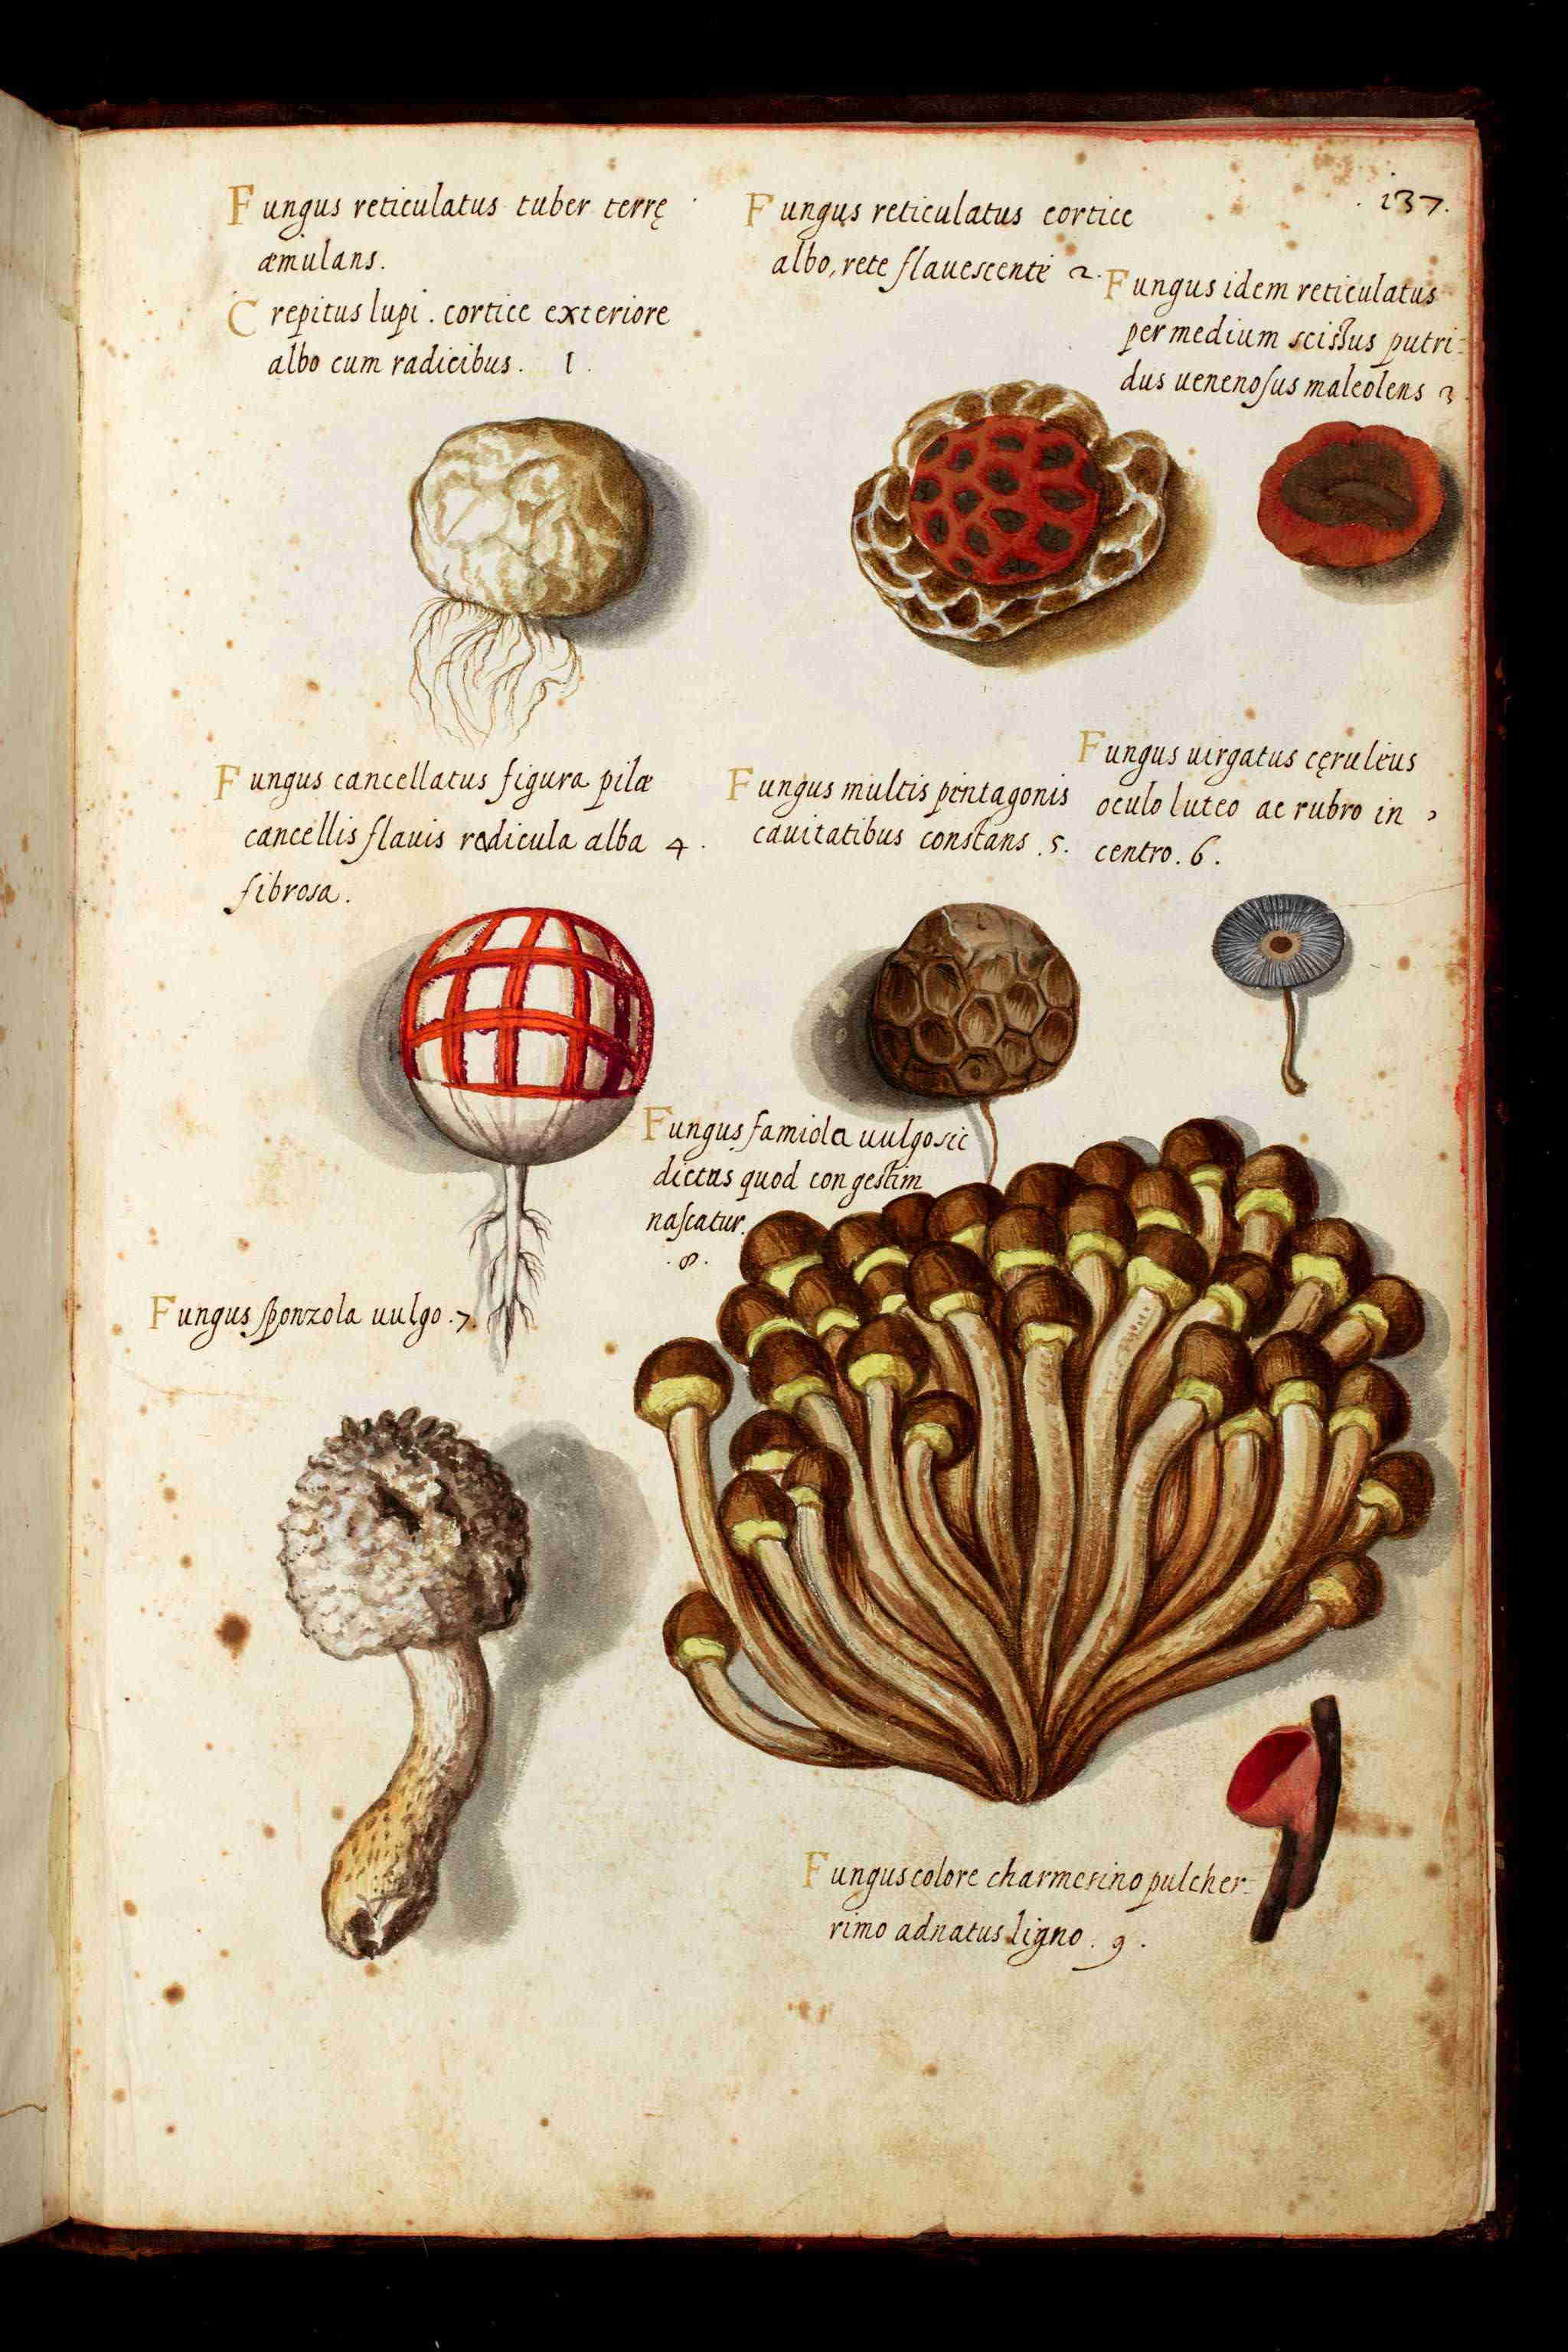 137.
Fungus reticulatus tuber terrę
æmulans.
Crepitus lupi. cortice exteriore
albo cum radicibus. 1.
Fungus reticulatus cortice
albo, rete flauescente 2.
Fungus idem reticulatus
per medium scissus putri-
dus uenenosus maleolens 3.
Fungus cancellatus figura pilæ
cancellis flauis radicula alba 4.
fibrosa.
Fungus multis pentagonis
cauitatibus constans .5.
Fungus uirgatus cęruleus
oculo luteo ac rubro in
centro. 6.
Fungus famiola uulgo sic
dictus quod congestim
nascatur.
.8.
Fungus sponzola uulgo .7.
Fungus colore charmesino pulcher-
rimo adnatus ligno. 9.